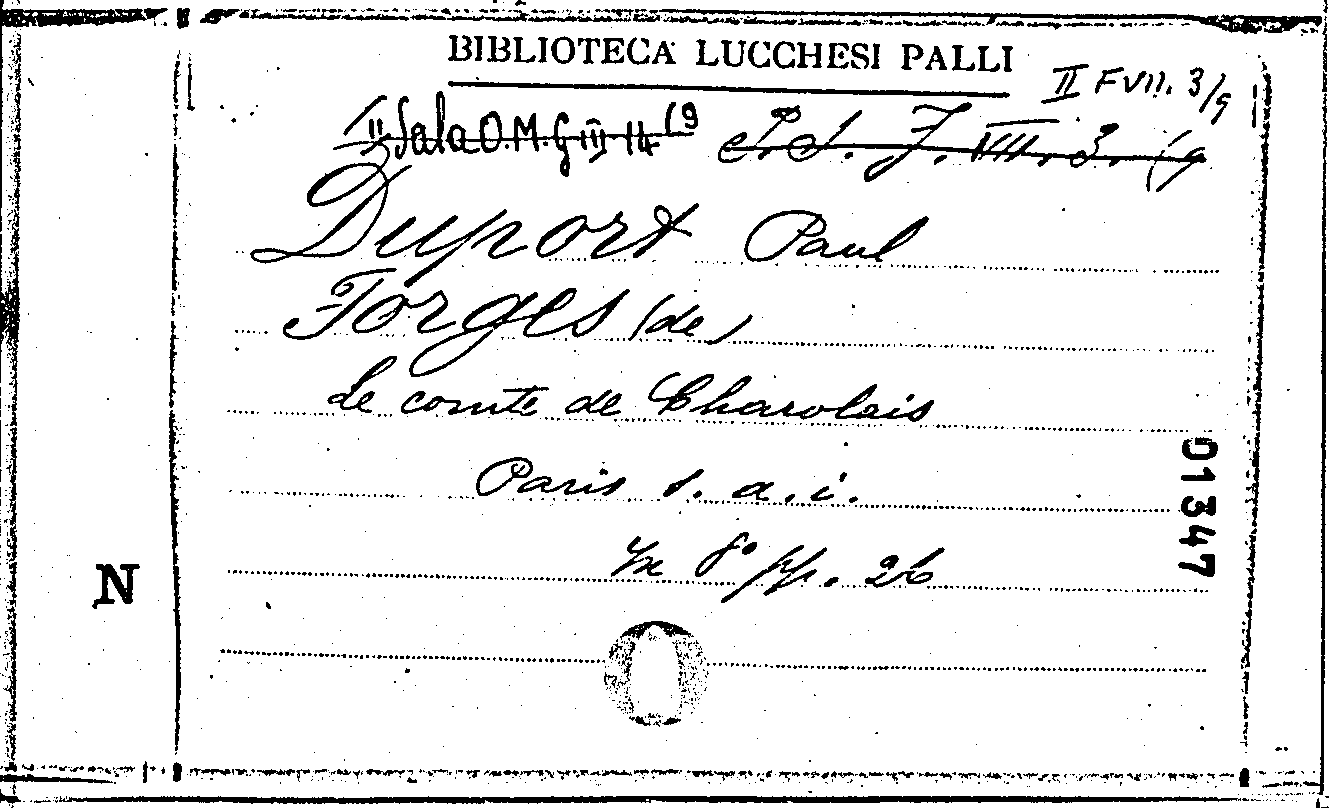 BIBLIOTECA LUCCHESI PALLI
II F VII. 3/9
II Sala O.M. G III 14 (9 S. J. VIII. 3. (9
Duport Paul
Forges (de)
Le comte de Charolais
Paris s. a. i.
In 8° pp. 26
01347
N